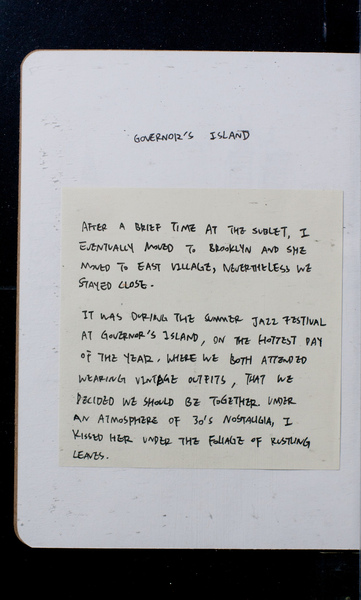 GOVERNOR'S ISLAND
AFTER A BRIEF TIME AT THE SUBLET, I
EVENTUALLY MOVED TO BROOKLYN AND SHE
MOVED TO EAST VILLAGE, NEVERTHELESS WE
STAYED CLOSE.
IT WAS DURING THE SUMMER JAZZ FESTIVAL
AT GOVERNOR'S ISLAND, ON THE HOTTEST DAY
OF THE YEAR. WHERE WE BOTH ATTENDED
WEARING VINTAGE OUTFITS, THAT WE
DECIDED WE SHOULD BE TOGETHER. UNDER
AN ATMOSPHERE OF 30'S NOSTALIGIA, I
KISSED HER UNDER THE FOLIAGE OF RUSTLING
LEAVES.